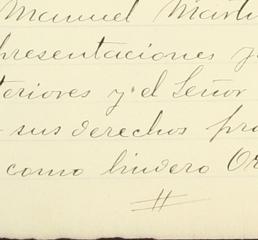 Manuel Marti
presentaciones y
teriores y el Señor
sus derechos pro
como lindero Or